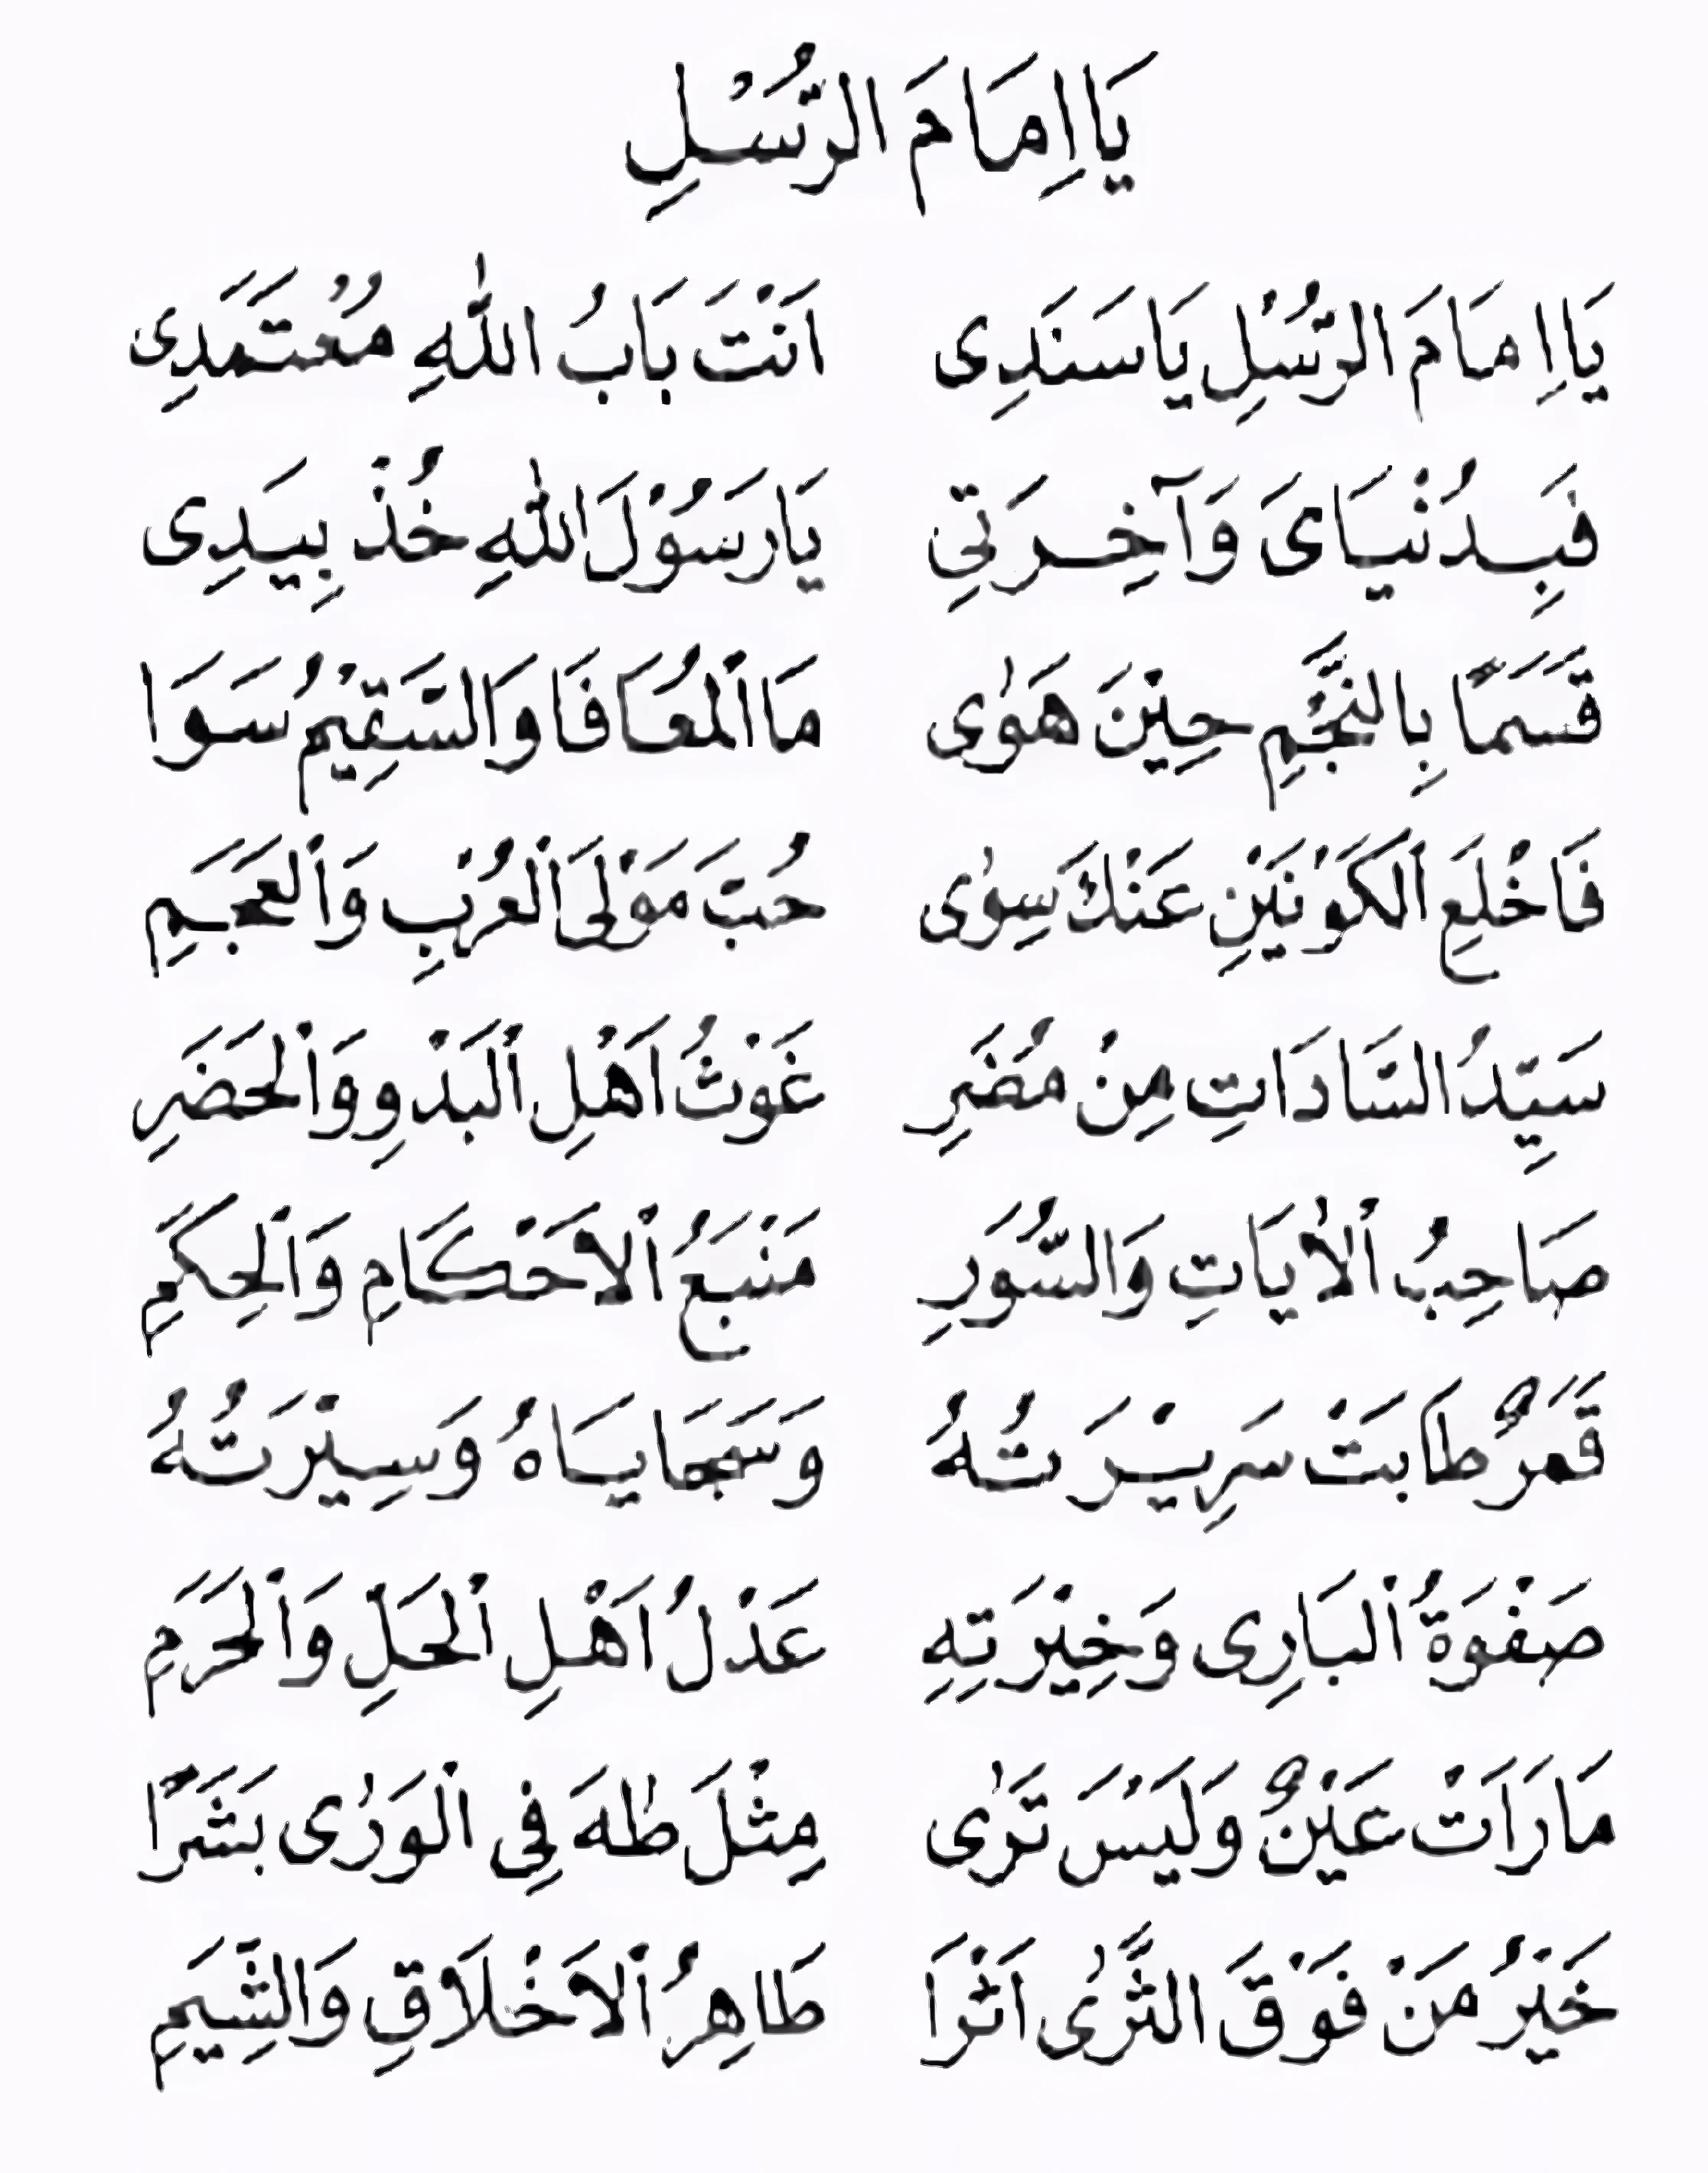 يَا اِمَامَ الرُّسْلِ
يَا اِمَامَ الرُّسْلِ يَا سَنَدِى اَنْتَ بَابُ اللّٰهِ مُعْتَمَدِى
فَبِدُنْيَاىَ وَآخِرَتِى يَارَسُوْلَ اللّٰهِ خُذْ بِيَدِى
قَسَمًا بِالنَّجْمِ حِيْنَ هَوٰى مَا الْمُعَافَا وَالسَّقِيْمُ سَوَا
فَاخْلَعِ الْكَوْنَيْنِ عَنْكَ سِوٰى حُبَّ مَوْلَى الْعُرْبِ وَالْعَجَمِ
سَيِّدُ السَّادَاتِ مِنْ مُضَرِ غَوْثُ اَهْلِ الْبَدْوِ وَالْحَضَرِ
صَاحِبُ الْاٰيَاتِ وَالسُّوَرِ مَنْبَعُ الْاَحْكَامِ وَالْحِكَمِ
قَمَرٌ طَابَتْ سَرِيْرَتُهُ وَسَجَايَاهُ وَسِيْرَتُهُ
صَفْوَةُ الْبَارِى وَخِيْرَتِهِ عَدْلُ اَهْلِ الْحَلِّ وَالْحَرَمِ
مَارَاَتْ عَيْنٌ وَلَيْسَ تَرٰى مِثْلَ طٰهَ فِى الْوَرٰى بَشَرًا
خَيْرُ مَنْ فَوْقَ الثَّرٰى اَثْرَا طَاهِرُ الْاَخْلَاقِ وَالشِّيَمِ